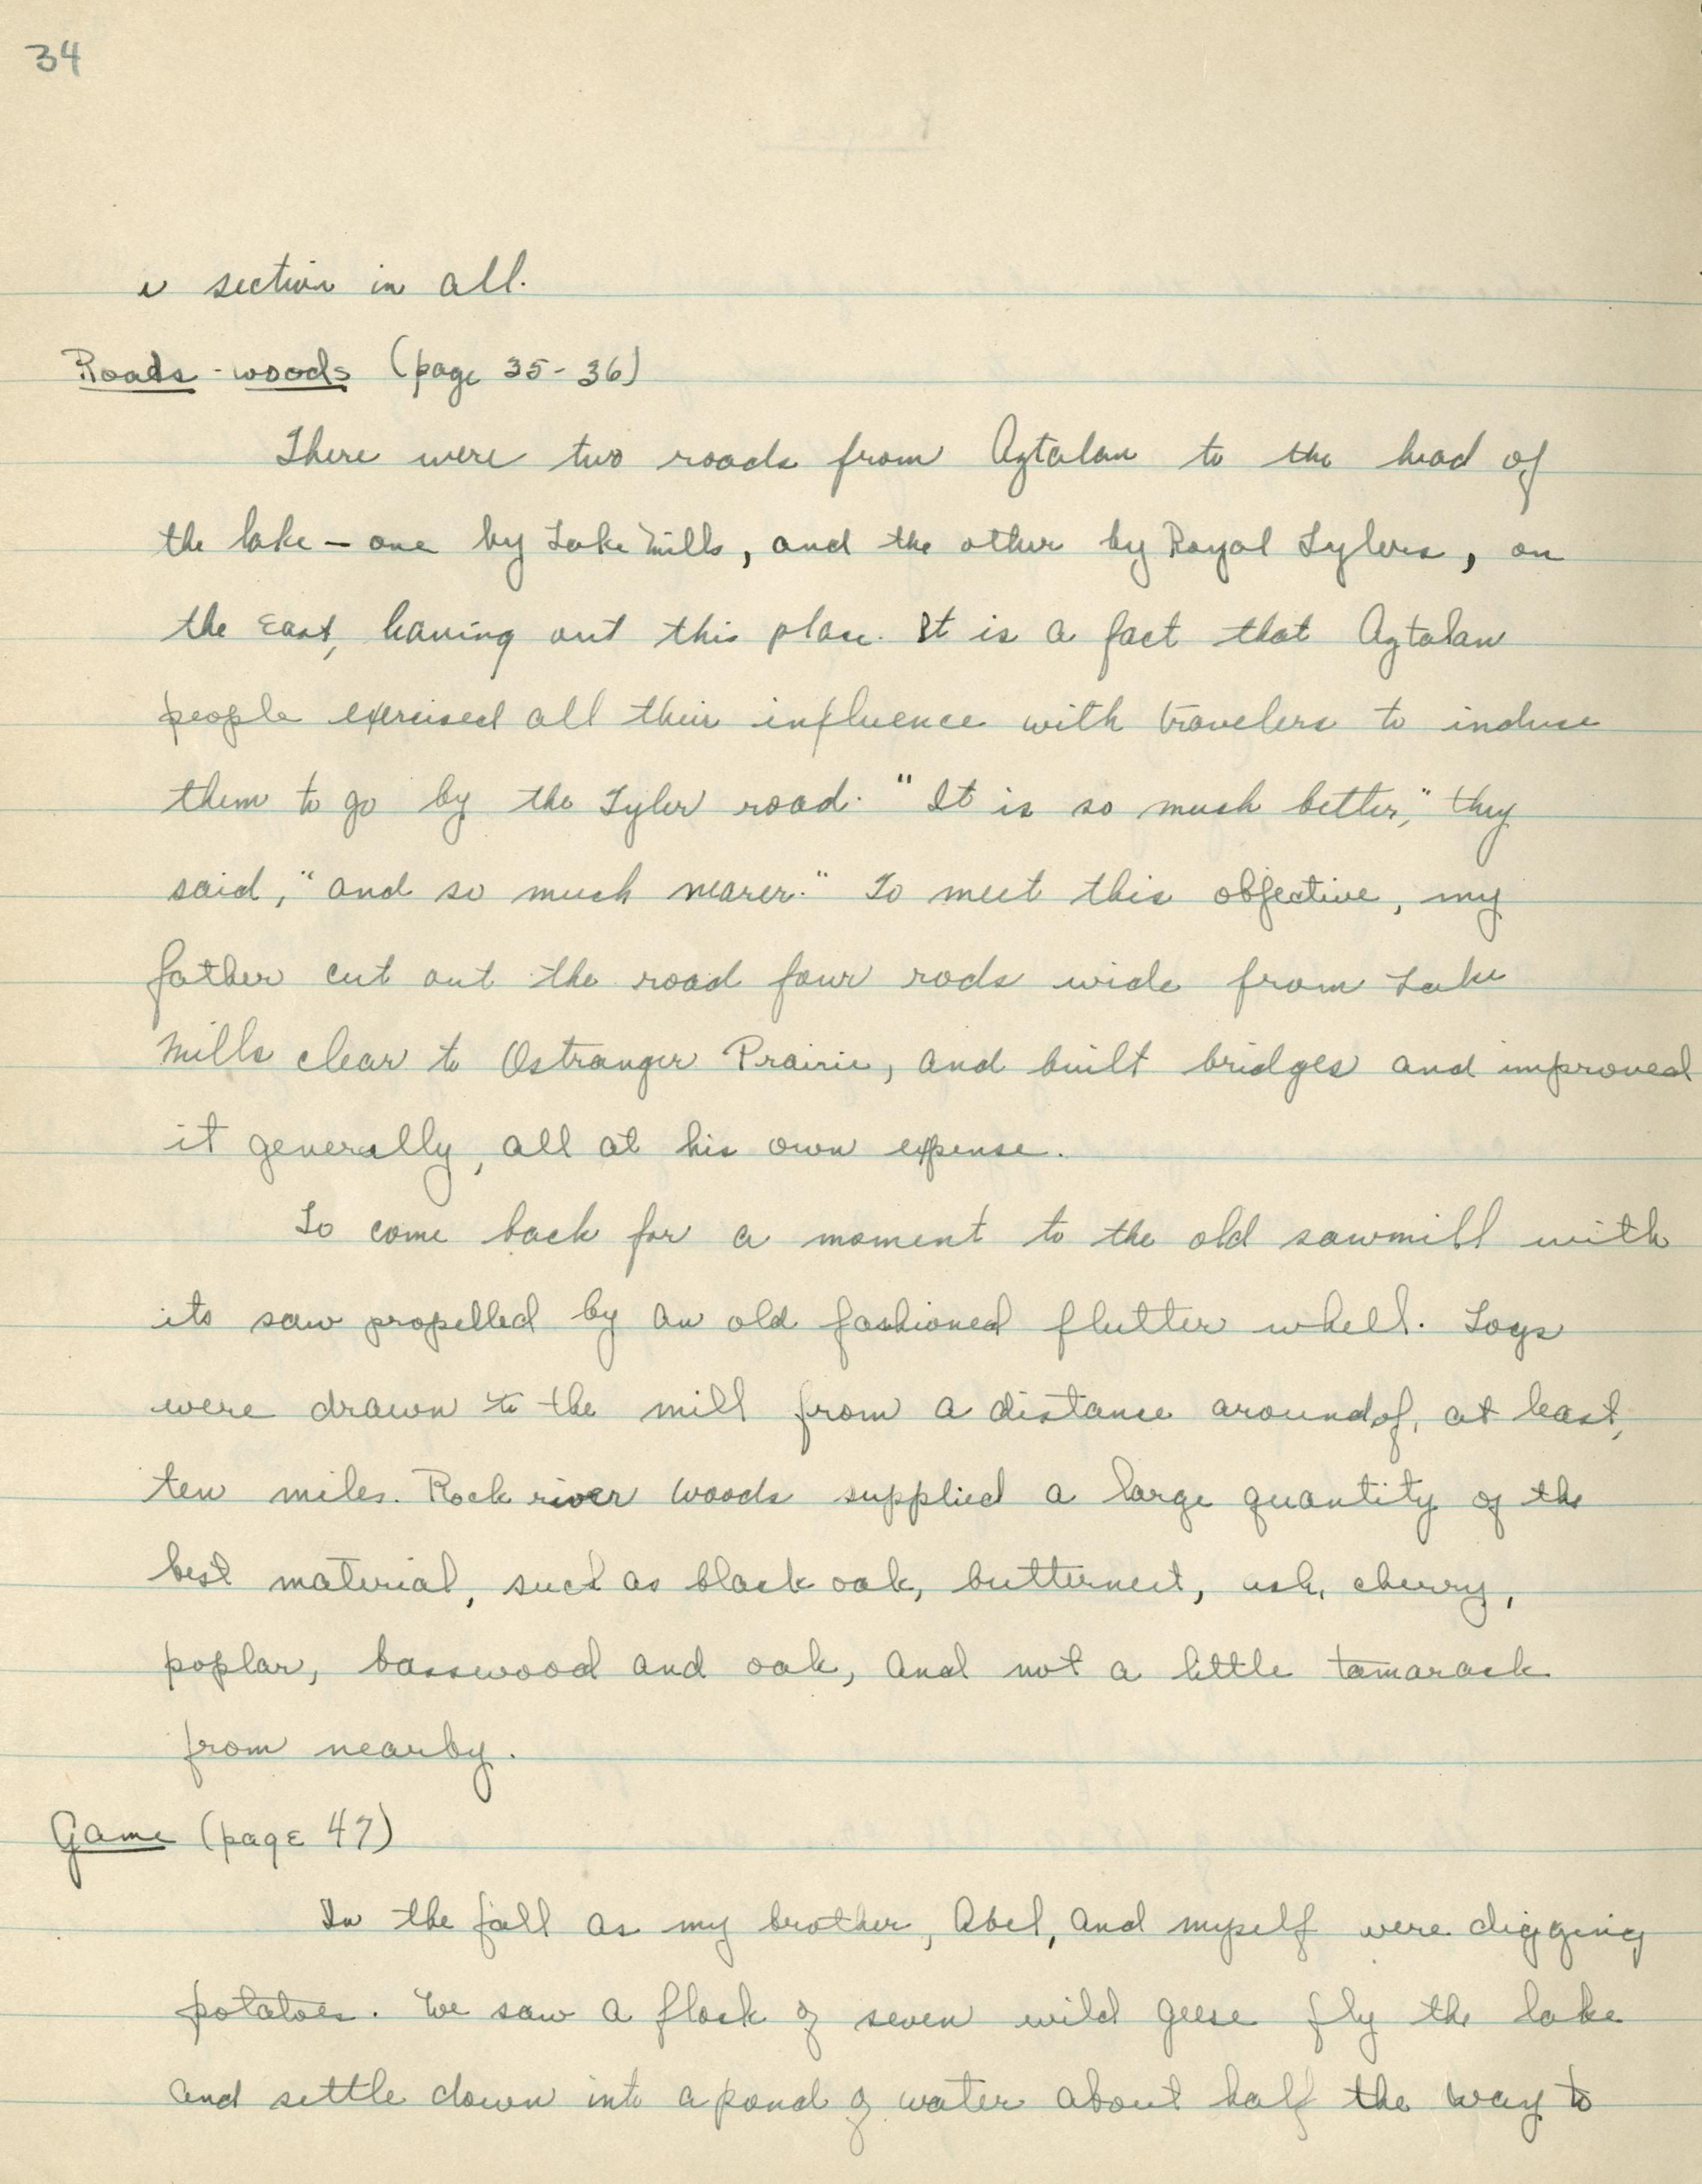 34
a section in all.
Roads - woods (page 35-36)
There were two roads from Aztalan to the head of
the lake - one by Lake Mills, and the other by Royal Tylers, on
the East, leaving out this place. It is a fact that Aztalan
people exercised all their influence with travelers to induce
them to go by the Tyler road. "It is so much better," they
said, "and so much nearer." To meet this objective, my
father cut out the road four rods wide from Lake
Mills clear to Ostranger Prairie, and built bridges and improved
it generally, all at his own expense.
To come back for a moment to the old sawmill with
its saw propelled by an old fashioned flutter whell. Logs
were drawn to the mill from a distance around of, at least,
ten miles. Rock river woods supplied a large quantity of the
best material, such as black oak, butternut, ash, cherry,
poplar, basswood and oak, and not a little tamarack
from nearby.
Game (page 47)
In the fall as my brother, Abel, and myself were digging
potatoes. We saw a flock of seven wild geese fly the lake
and settle down into a pond of water about half the way to